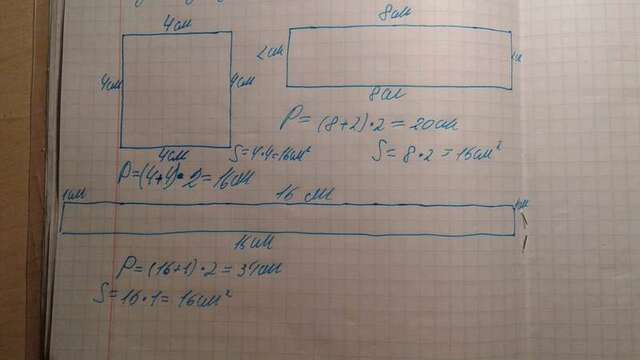 4см
4см 4см
4см
S=4·4=16см²
P=(4+4)·2=16см
8см
2см
8см
P=(8+2)·2=20см
S=8·2=16см²
1см 16 см
16см
P=(16+1)·2=34см
S=16·1=16см²